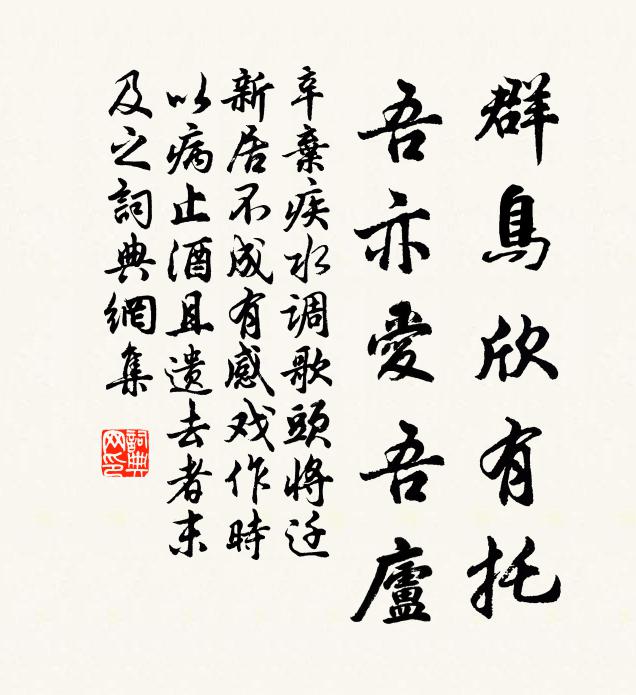 群鳥欣有托
吾亦愛吾廬
辛棄疾水调歌頭將迁
新居不成有感戏作時
以病止酒且遣去者末
及之詞典網集
詞典网印